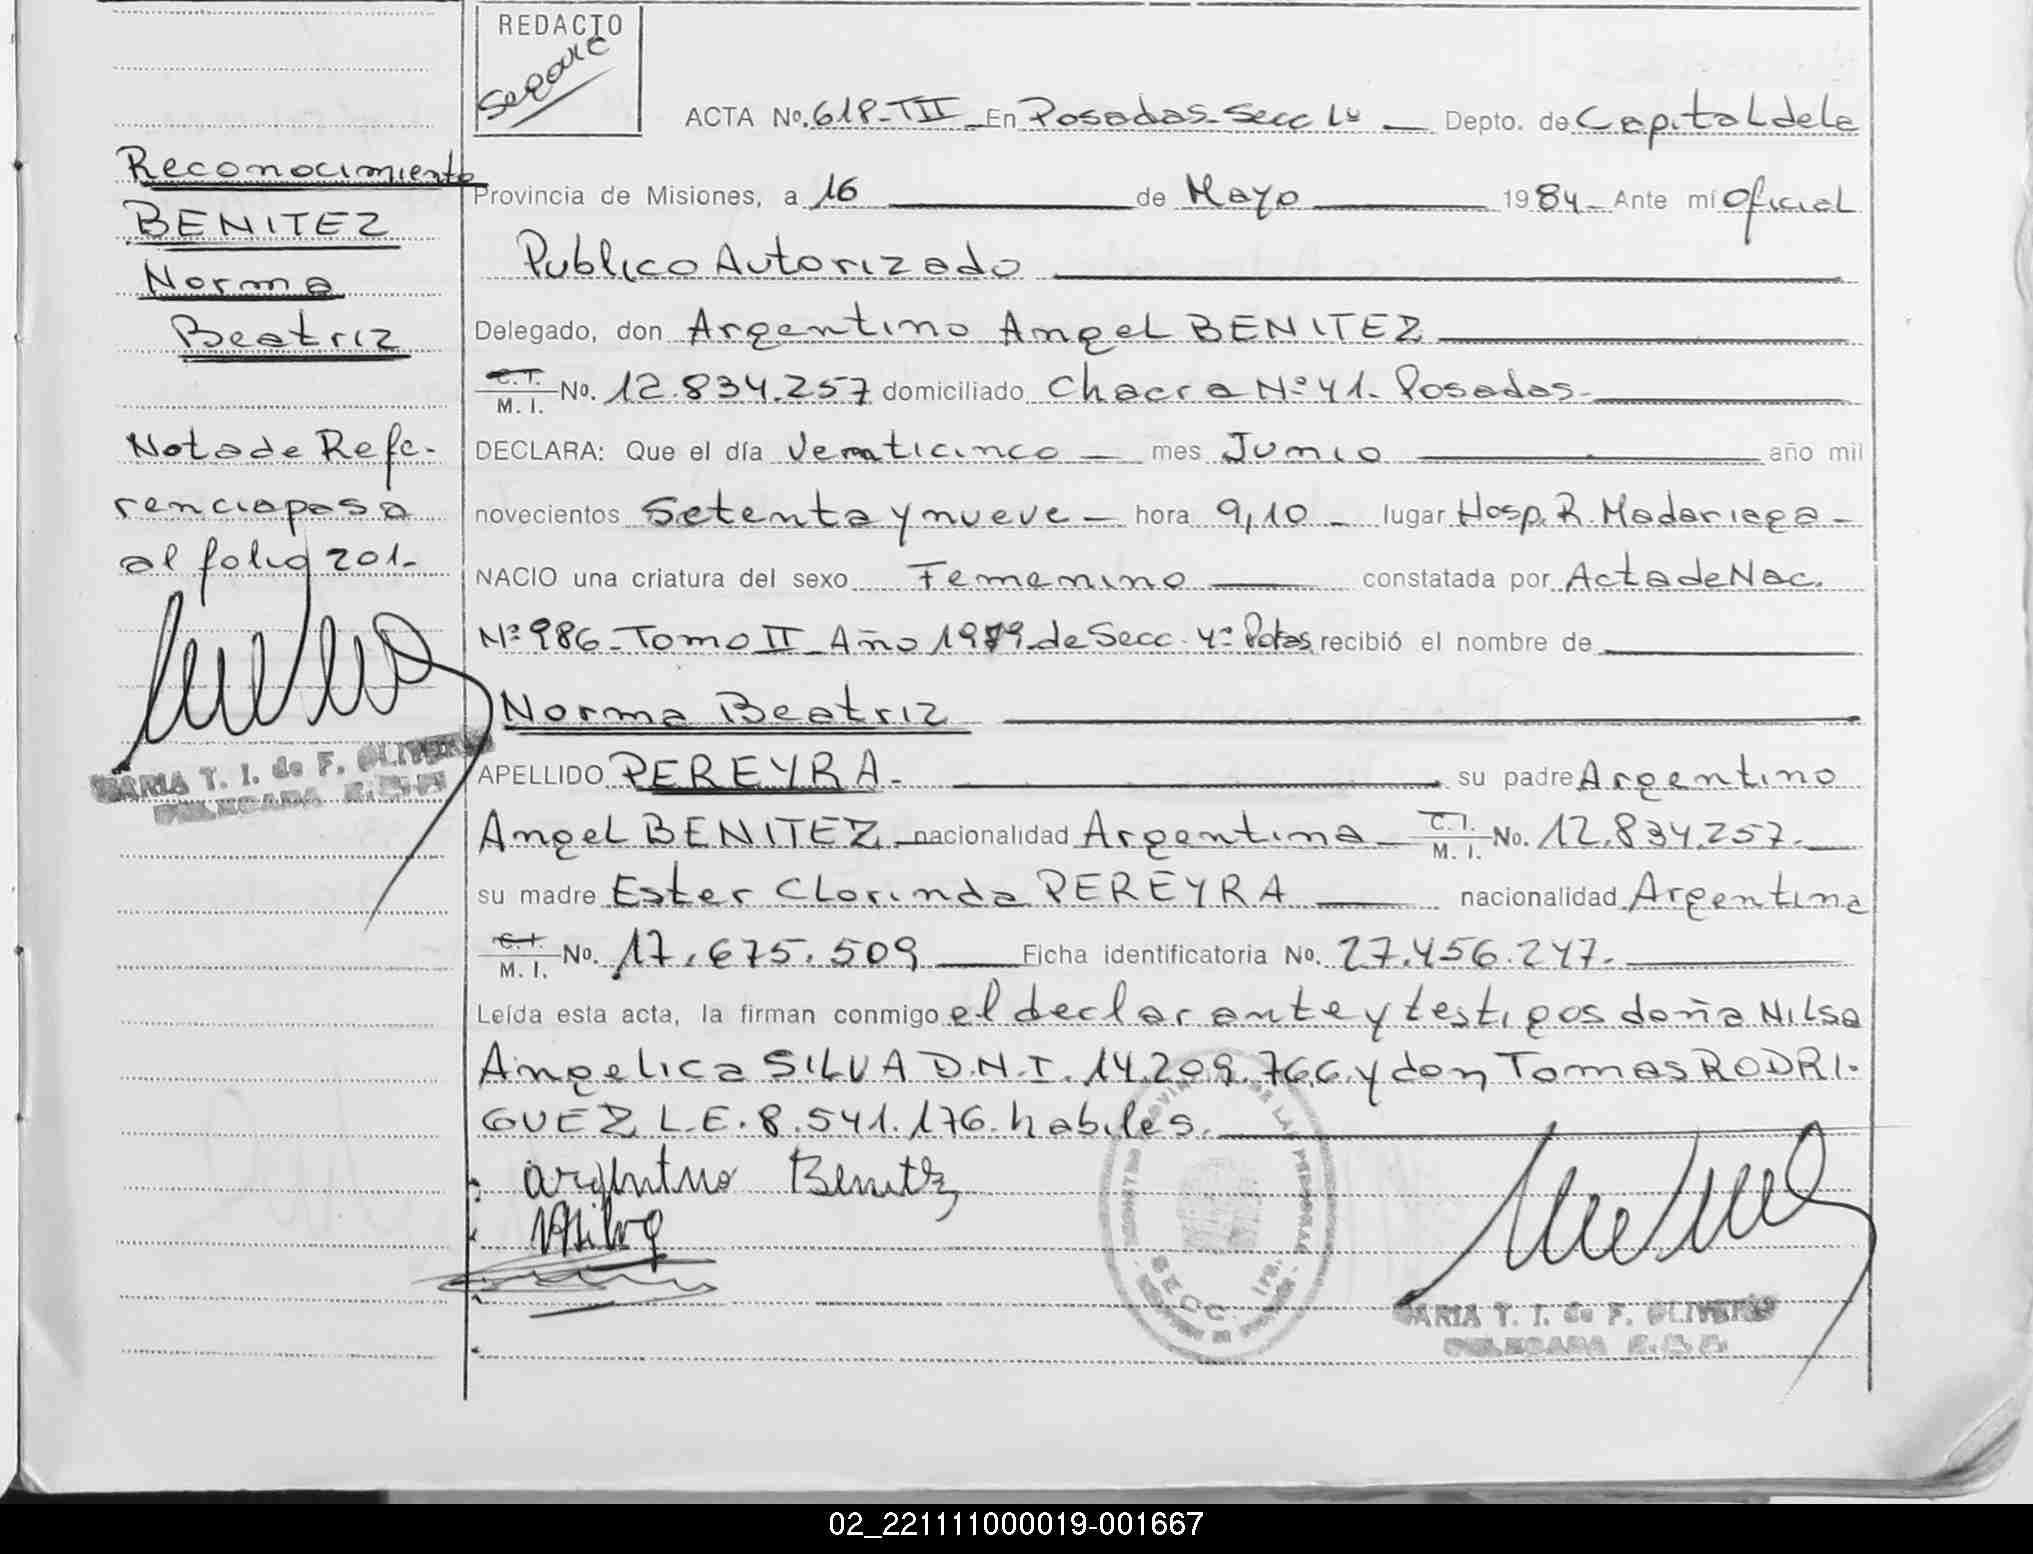 REDACTO
ACTA No. 618-TII En Posadas-Secc 1º Depto. de Capital de la
Reconocimiento
Provincia de Misiones, a 16 de Mayo 1984 Ante mí Oficial
BENITEZ
Publico Autorizado
Norma
Delegado, don Argentino Angel BENITEZ
Beatriz
C.I. M. I. No. 12.834.257 domiciliado Chacra Nº 41. Posadas.
Nota de Refe-
DECLARA: Que el día Veinticinco mes Junio año mil
rencia pasa
novecientos Setenta y nueve hora 9,10 lugar Hosp. R. Madariaga
al folio 201.
NACIO una criatura del sexo Femenino constatada por Acta de Nac.
Nº 986-Tomo II Año 1979 de Secc. 4º Pdas recibió el nombre de
Norma Beatriz
MARIA T. I. de F. OLIVERÓS
DELEGADA
APELLIDO PEREYRA. su padre Argentino
Angel BENITEZ nacionalidad Argentina C. I. M. I. No. 12.834.257.
su madre Ester Clorinda PEREYRA nacionalidad Argentina
C.I. M. I. No. 17.675.509 Ficha identificatoria No. 27.456.247.
Leída esta acta, la firman conmigo el declarante y testigos doña Nilsa
Angelica SILVA D.N.I. 14.209.766 y don Tomas RODRI-
GUEZ L.E. 8.541.176. habiles.
Argentino Benitez
NASilva
MARIA T. I. de F. OLIVERÓS
DELEGADA
SECC. 1ra.
02_221111000019-001667